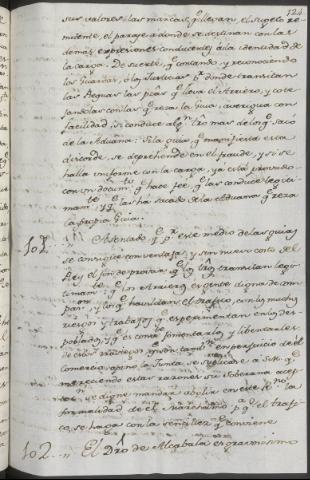 124
sus valores, las marcas, q.e llevan, el sugeto re-
mitente, el parage adonde se destinan con las
demas expresiones conducentes á la identidad de
la carga. De suerte, q.e cotando, y reconociendo
los Guardas, ó las Justicias p.r donde transitan
las Yeguas las pzas q.e lleva el Arriero, y cote-
jandolas con las q.e reza la Guia, averigua con
facilidad, si conduce alg.n tro mas de los q.e sacó
de la Aduana: Si la guia, q.e manifiesta esta
discorde, se aprehende en el fraude, y si se
halla uniforme con la carga, ya está
con un docum.to q.e hace fee, q.e las conduce legiti-
mam.te y q.e las ha sacado de la Aduana q.e reza
la propia Guia.
101. Asentado q.e p.r este medio de las guias
se consigue con ventajas, y sin nuevo costo del
Rey el fin de provar q.e los transitan legi-
timam.te q.e los Arrieros es gente digna de com-
pas.on y los q.e havilitan el trafico, con los muchos
riesgos y trabajos q.e experimentan en los des-
poblados, y q.e es conv.te fomentarlos, y libertarles
de estas en perjuicio del
comercio, la Junta, se suplicase a S.M. q.e
mereciendo estas razones su Soberana acep-
.on se digne mandar abolir en este la
formalidad de el Marchamo p.a q.e el trafi-
co, se haga con la sencillez q.e conviene
102. El Dro de Alcabala es gravosisimo